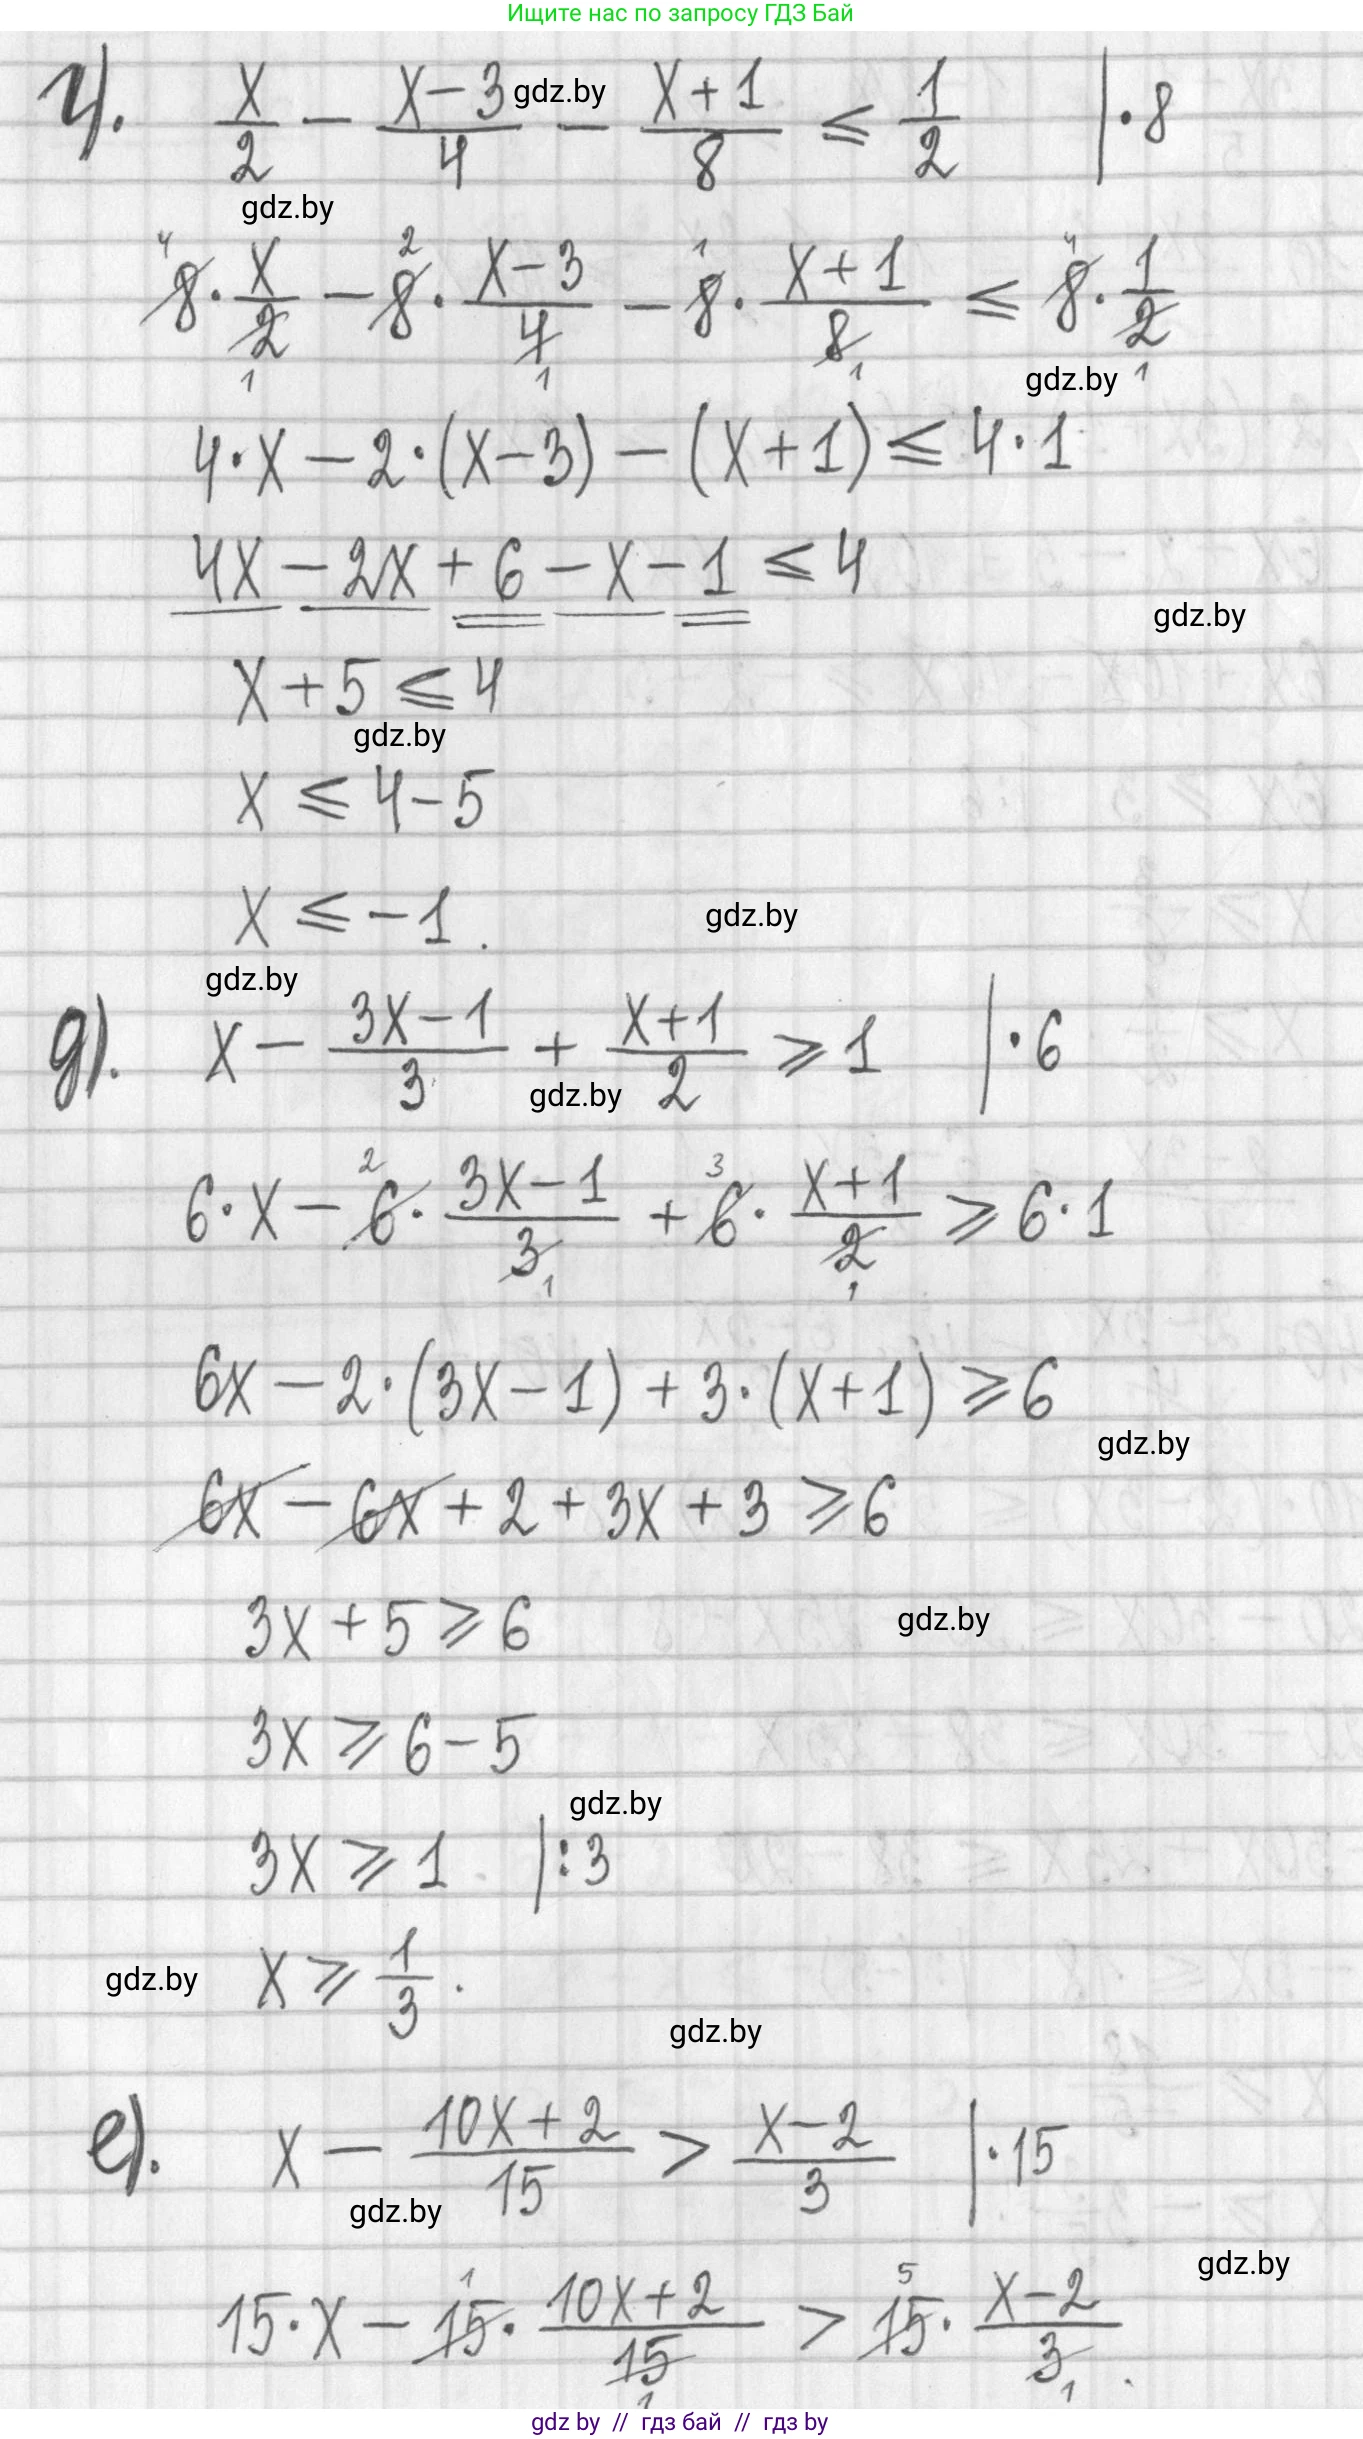 Ищите нас по запросу ГДЗ Бай
г). x/2 - (x-3)/4 - (x+1)/8 ≤ 1/2 | ·8
gdz.by
gdz.by
8·x/2 - 8·(x-3)/4 - 8·(x+1)/8 ≤ 8·1/2
gdz.by
4·x - 2·(x-3) - (x+1) ≤ 4·1
4x - 2x + 6 - x - 1 ≤ 4
gdz.by
x + 5 ≤ 4
gdz.by
x ≤ 4-5
x ≤ -1.
gdz.by
gdz.by
д). x - (3x-1)/3 + (x+1)/2 ≥ 1 | ·6
gdz.by
6·x - 6·(3x-1)/3 + 6·(x+1)/2 ≥ 6·1
6x - 2·(3x-1) + 3·(x+1) ≥ 6
gdz.by
6x - 6x + 2 + 3x + 3 ≥ 6
3x + 5 ≥ 6
gdz.by
3x ≥ 6-5
gdz.by
3x ≥ 1 | :3
gdz.by
x ≥ 1/3.
gdz.by
е). x - (10x+2)/15 > (x-2)/3 | ·15
gdz.by
gdz.by
15·x - 15·(10x+2)/15 > 15·(x-2)/3.
gdz by // гдз бай // гдз by